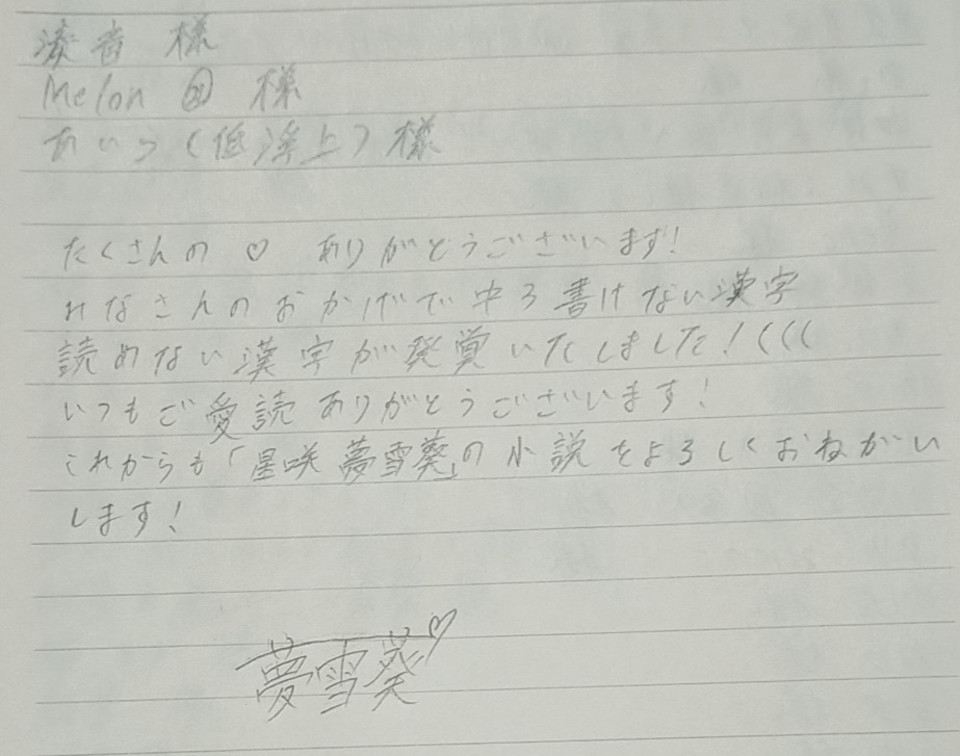 湊音 様
Melon 様
あいつ(低浮上)様
たくさんの ♡ ありがとうございます!
みなさんのおかげで中3書けない漢字
読めない漢字が発覚いたしました!(((
いつもご愛読ありがとうございます!
これからも「星咲 夢雪葵」の小説をよろしくおねがい
します!
夢雪葵♡